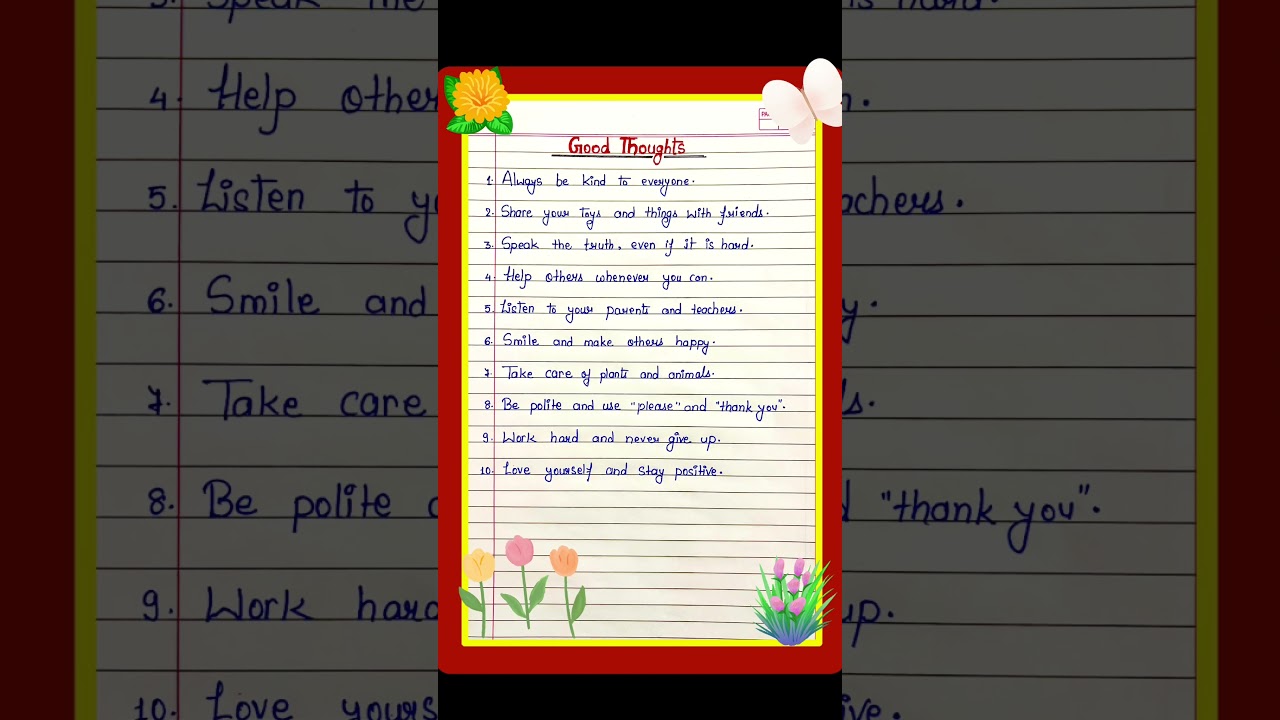 Good Thoughts
1. Always be kind to everyone.
2. Share your toys and things with friends.
3. Speak the truth, even if it is hard.
4. Help others whenever you can.
5. Listen to your parents and teachers.
6. Smile and make others happy.
7. Take care of plants and animals.
8. Be polite and use "please" and "thank you".
9. Work hard and never give up.
10. Love yourself and stay positive.